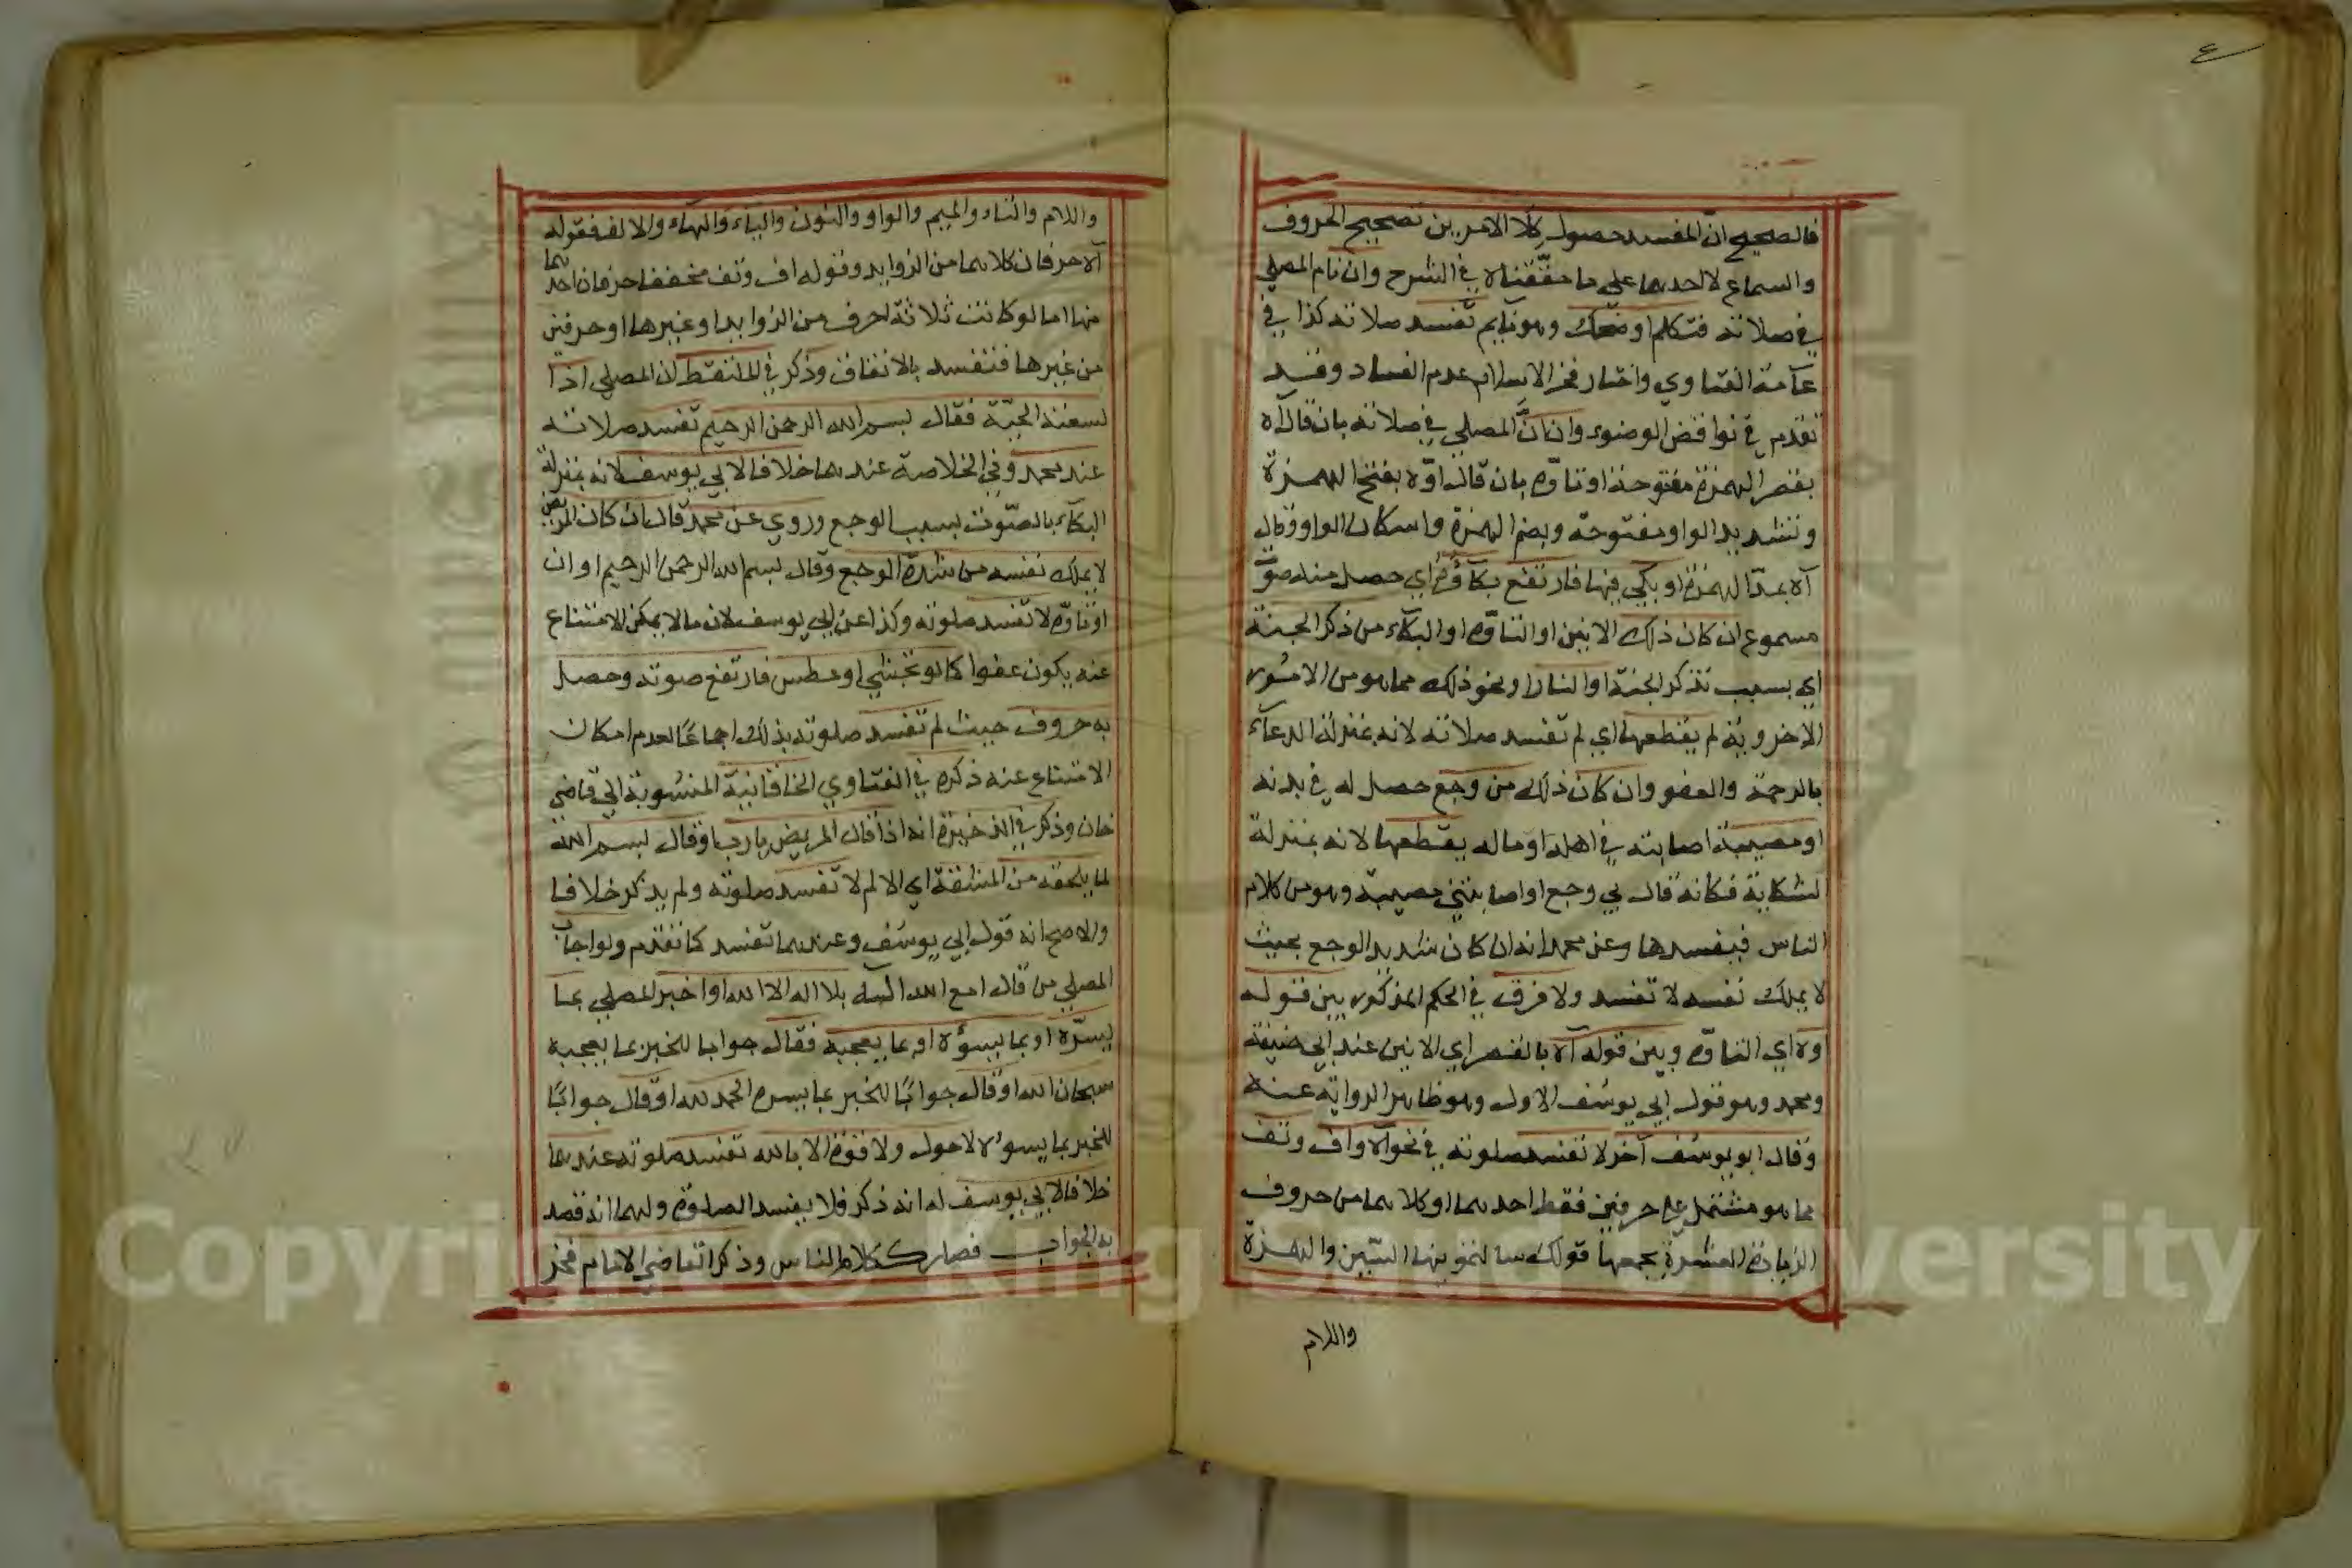 ع
فالصحيح ان المفسد حصول كلا الامرين تصحيح الحروف
والسماع لا احدهما على ما حققناه في الشرح وان نام المصلي
في صلاته فتكلم او ضحك وهو نايم تفسد صلاته كذا في
عآمة الفتاوي واختار فخر الاسلام عدم الفساد وقد
تقدم في نواقض الوضوء وان انّ المصلي في صلاته بان قال اه
بقصر الهمزة مفتوحة او تاوّه بان قال اوّه بفتح الهمزة
وتشديد الواو مفتوحة وبضم الهمزة واسكان الواو وقال
آه بمدّ الهمزة او بكي فيها فارتفع بكآؤه اي حصل منه صوت
مسموع ان كان ذلك الانين او التاوّه او البكآء من ذكر الجنة
اي بسبب تذكر الجنة او النار او نحو ذلك مما هو من الامور
الاخروية لم يقطعها اي لم تفسد صلاته لانه بمنزلة الدعآء
بالرحمة والعفو وان كان ذلك من وجع حصل له في بدنه
او مصيبة اصابته في اهله او ماله يقطعها لانه بمنزلة
الشكاية فكانه قال بي وجع او اصابتني مصيبة وهو من كلام
الناس فيفسدها وعن محمد انه ان كان شديد الوجع بحيث
لا يملك نفسه لا تفسد ولا فرق في الحكم المذكور بين قوله
اوه اي التاوّه وبين قوله آه بالقصر اي الانين عند ابي حنيفة
ومحمد وهو قول ابي يوسف الاول وهو ظاهر الرواية عنه
وقال ابو يوسف آخرا لا تفسد صلوته في نحو آه واف وتف
مما هو مشتمل علي حرفين فقط احدهما او كلاهما من حروف
الزيادة العشرة يجمعها قولك سالتمونيها السّين والهمزة
واللام
واللام والتاء والميم والواو والنون والياء والهآء والالف فقوله
آه حرفان كلاهما من الزوايد وقوله اف وتف مخففا حرفان احدهما
منها اما لو كانت ثلاثة احرف من الزوايد او غيرها او حرفين
من غيرها فتفسد بالاتفاق وذكر في الملتقط ان المصلي اذا
لسعته الحيّة فقال بسم الله الرحمن الرحيم تفسد صلاته
عند محمد وفي الخلاصة عندهما خلافا لابي يوسف لانه بمنزلة
البكآء بالصّوت بسبب الوجع وروي عن محمد قال ان كان المريض
لا يملك نفسه من شدة الوجع وقال بسم الله الرحمن الرحيم او ان
او تاوّه لا تفسد صلوته وكذا عن ابي يوسف لان ما لا يمكن الامتناع
عنه يكون عفوا كما لو تجشي او عطس فارتفع صوته وحصل
به حروف حيث لم تفسد صلوته بذلك اجماعًا لعدم امكان
الامتناع عنه ذكره في الفتاوي الخاقانية المنسوبة الي قاضي
خان وذكر في الذخيرة انه اذا قال المريض يا رب او قال بسم الله
لما يلحقه من المشقة اي الالم لا تفسد صلوته ولم يذكر خلافا
والاصح انه قول ابي يوسف وعندهما تفسد كما تقدم ولو اجاب
المصلي من قال امع الله اله بلا اله الا الله او اخبر المصلي بما
يسرّه او بما يسوؤه او بما يعجبه فقال جوابا للخبر بما يعجبه
سبحان الله او قال جوابًا للخبر بما يسره الحمد لله او قال جوابًا
للخبر بما يسوءه لا حول ولا قوة الا بالله تفسد صلوته عندهما
خلافا لابي يوسف له انه ذكر فلا يفسد الصلوة ولهما انه قصد
به الجواب فصار ككلام الناس وذكر القاضي الامام فخر
Copyright © King Saud University